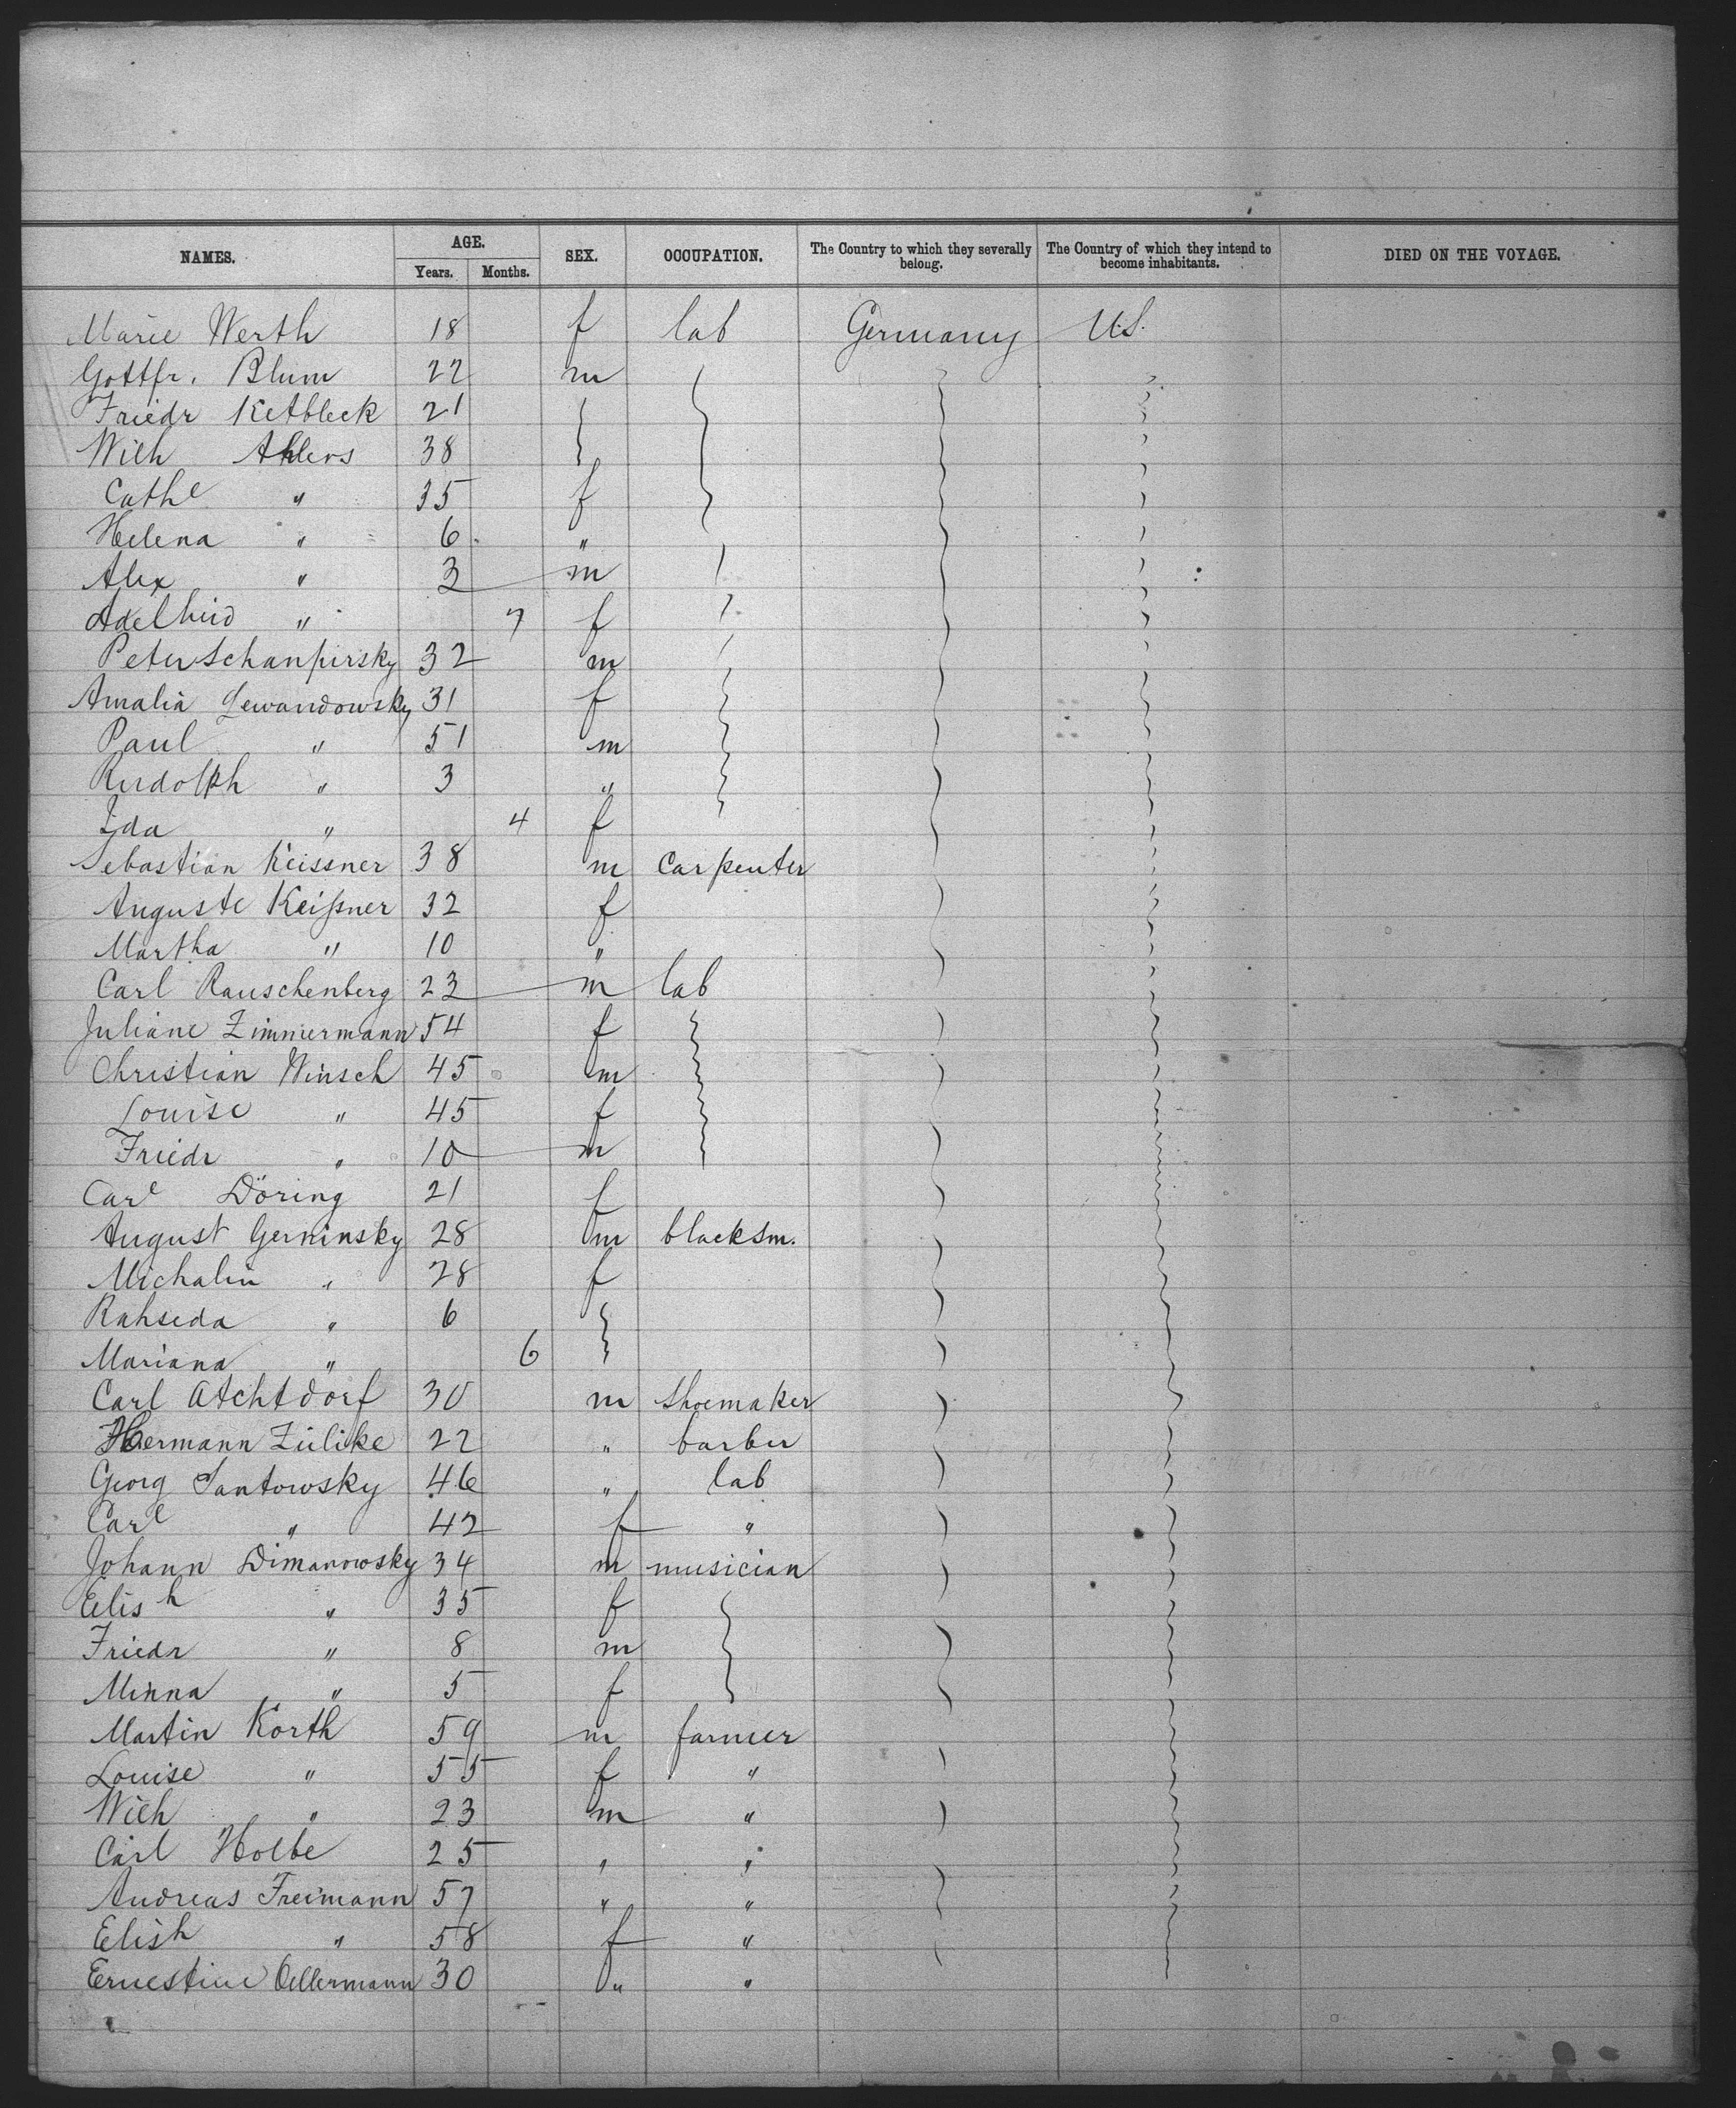 NAMES. AGE. SEX. OCCUPATION. The Country to which they severally belong. The Country of which they intend to become inhabitants. DIED ON THE VOYAGE.
Years. Months.
Marie Werth 18 f lab Germany U.S.
Gottfr. Blum 22 m
Friedr Ketbleck 21
Wilh Ahlers 38
Cathe " 35 f
Helena " 6 "
Alex " 3 m
Adelheid " 7 f
Peter Schanpirsky 32 m
Amalia Lewandowsky 31 f
Paul " 51 m
Rudolph " 3 "
Ida " 4 f
Sebastian Keissner 38 m carpenter
Auguste Keißner 32 f
Martha " 10 "
Carl Rauschenberg 23 m lab
Juliane Zimmermann 54 f
Christian Winsch 45 m
Louise " 45 f
Friedr " 10 m
Carl Döring 21 f
August Gerninsky 28 m blacksm.
Michalin " 28 f
Rahseda " 6
Mariana " 6
Carl Atchtdorf 30 m shoemaker
Hermann Zülike 22 " barber
Georg Santowsky 46 " lab
Carl " 42 f "
Johann Dimanowsky 34 m musician
Elish " 35 f
Friedr " 8 m
Minna " 5 f
Martin Korth 59 m farmer
Louise " 55 f "
Wilh " 23 m "
Carl Holbe 25 " "
Andreas Freimann 57 " "
Elish " 58 f "
Ernestine Oellermann 30 " "